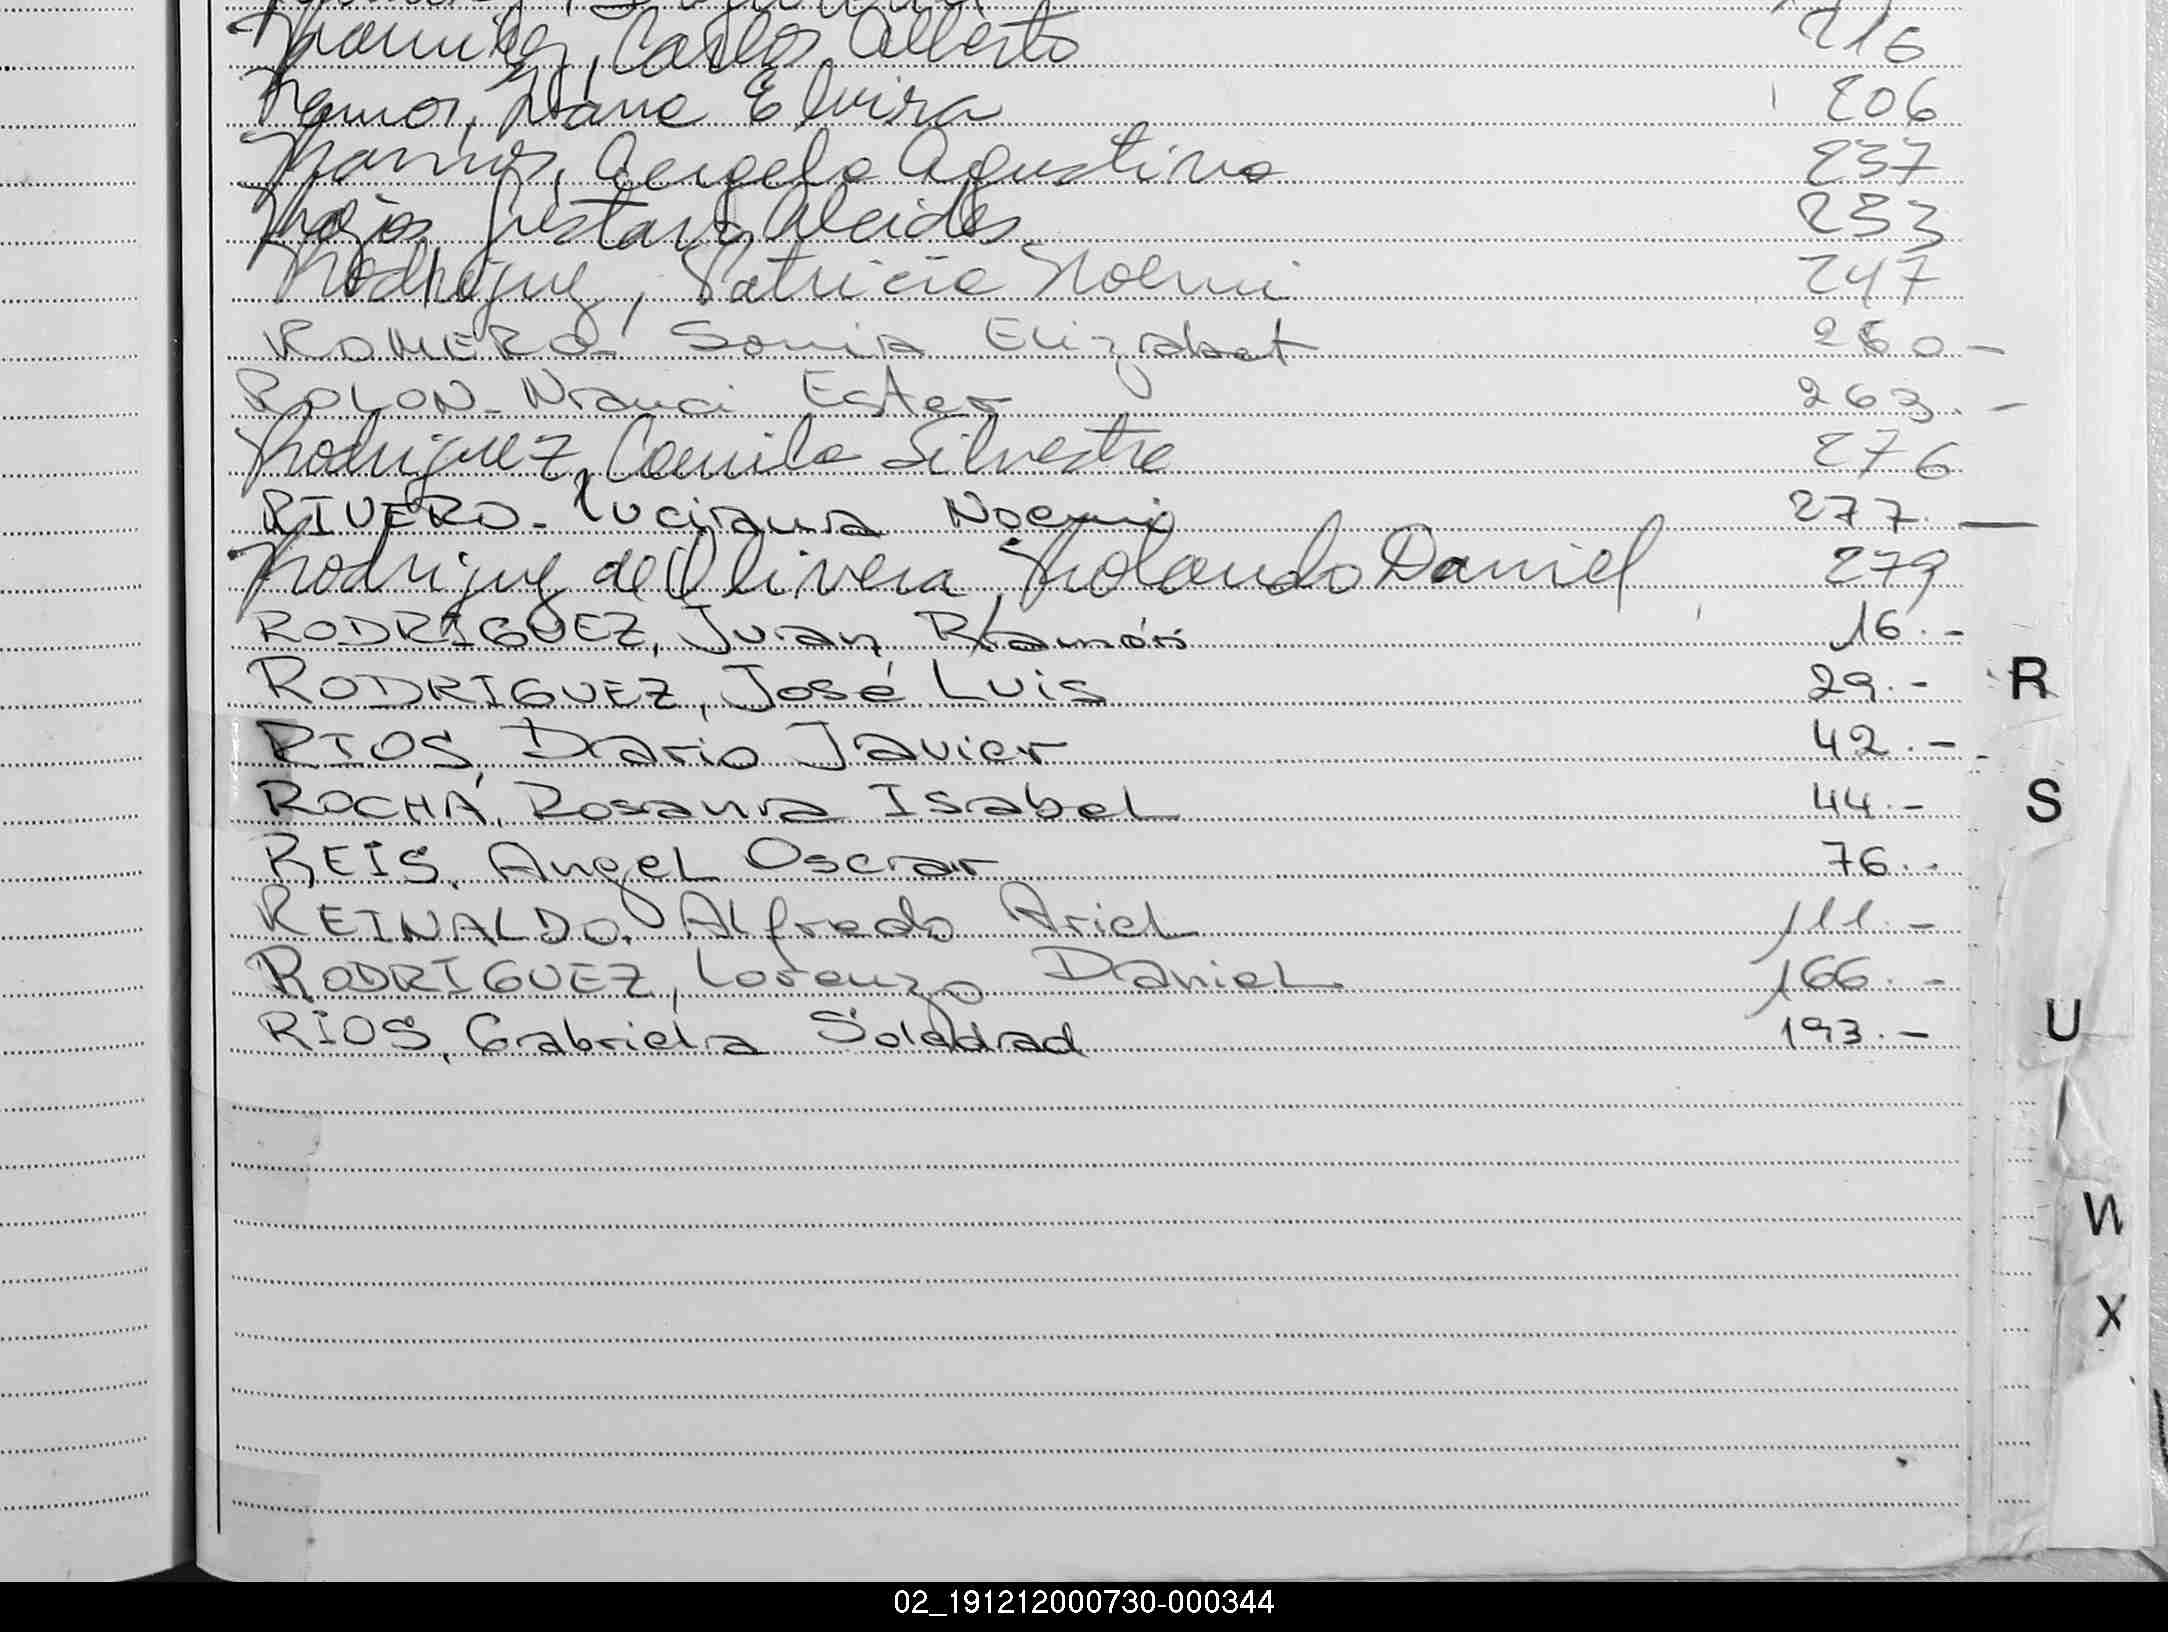 Ramirez, Carlos Alberto 216
Ramos, Diana Elvira 206
Ramirez, Angela Agustina 237
Rojas, Gustavo Alcides 233
Rodriguez, Patricia Noemi 247
ROMERO- Sonia Elizabet 260-
ROLON- Nanci Ester 263.-
Rodriguez, Camila Silvestre 276
RIVERO- Luciana Noemi 277.-
Rodriguez de Olivera, Rolando Daniel 279
RODRIGUEZ, Juan Ramón 16.-
RODRIGUEZ, José Luis 29.-
R
RIOS, Dario Javier 42.-
ROCHA, Rosana Isabel 44.-
S
REIS, Angel Oscar 76.-
REINALDO, Alfredo Ariel 111.-
RODRIGUEZ, Lorenzo Daniel 166.-
RIOS, Gabriela Soledad 193.-
U
W
X
02_191212000730-000344